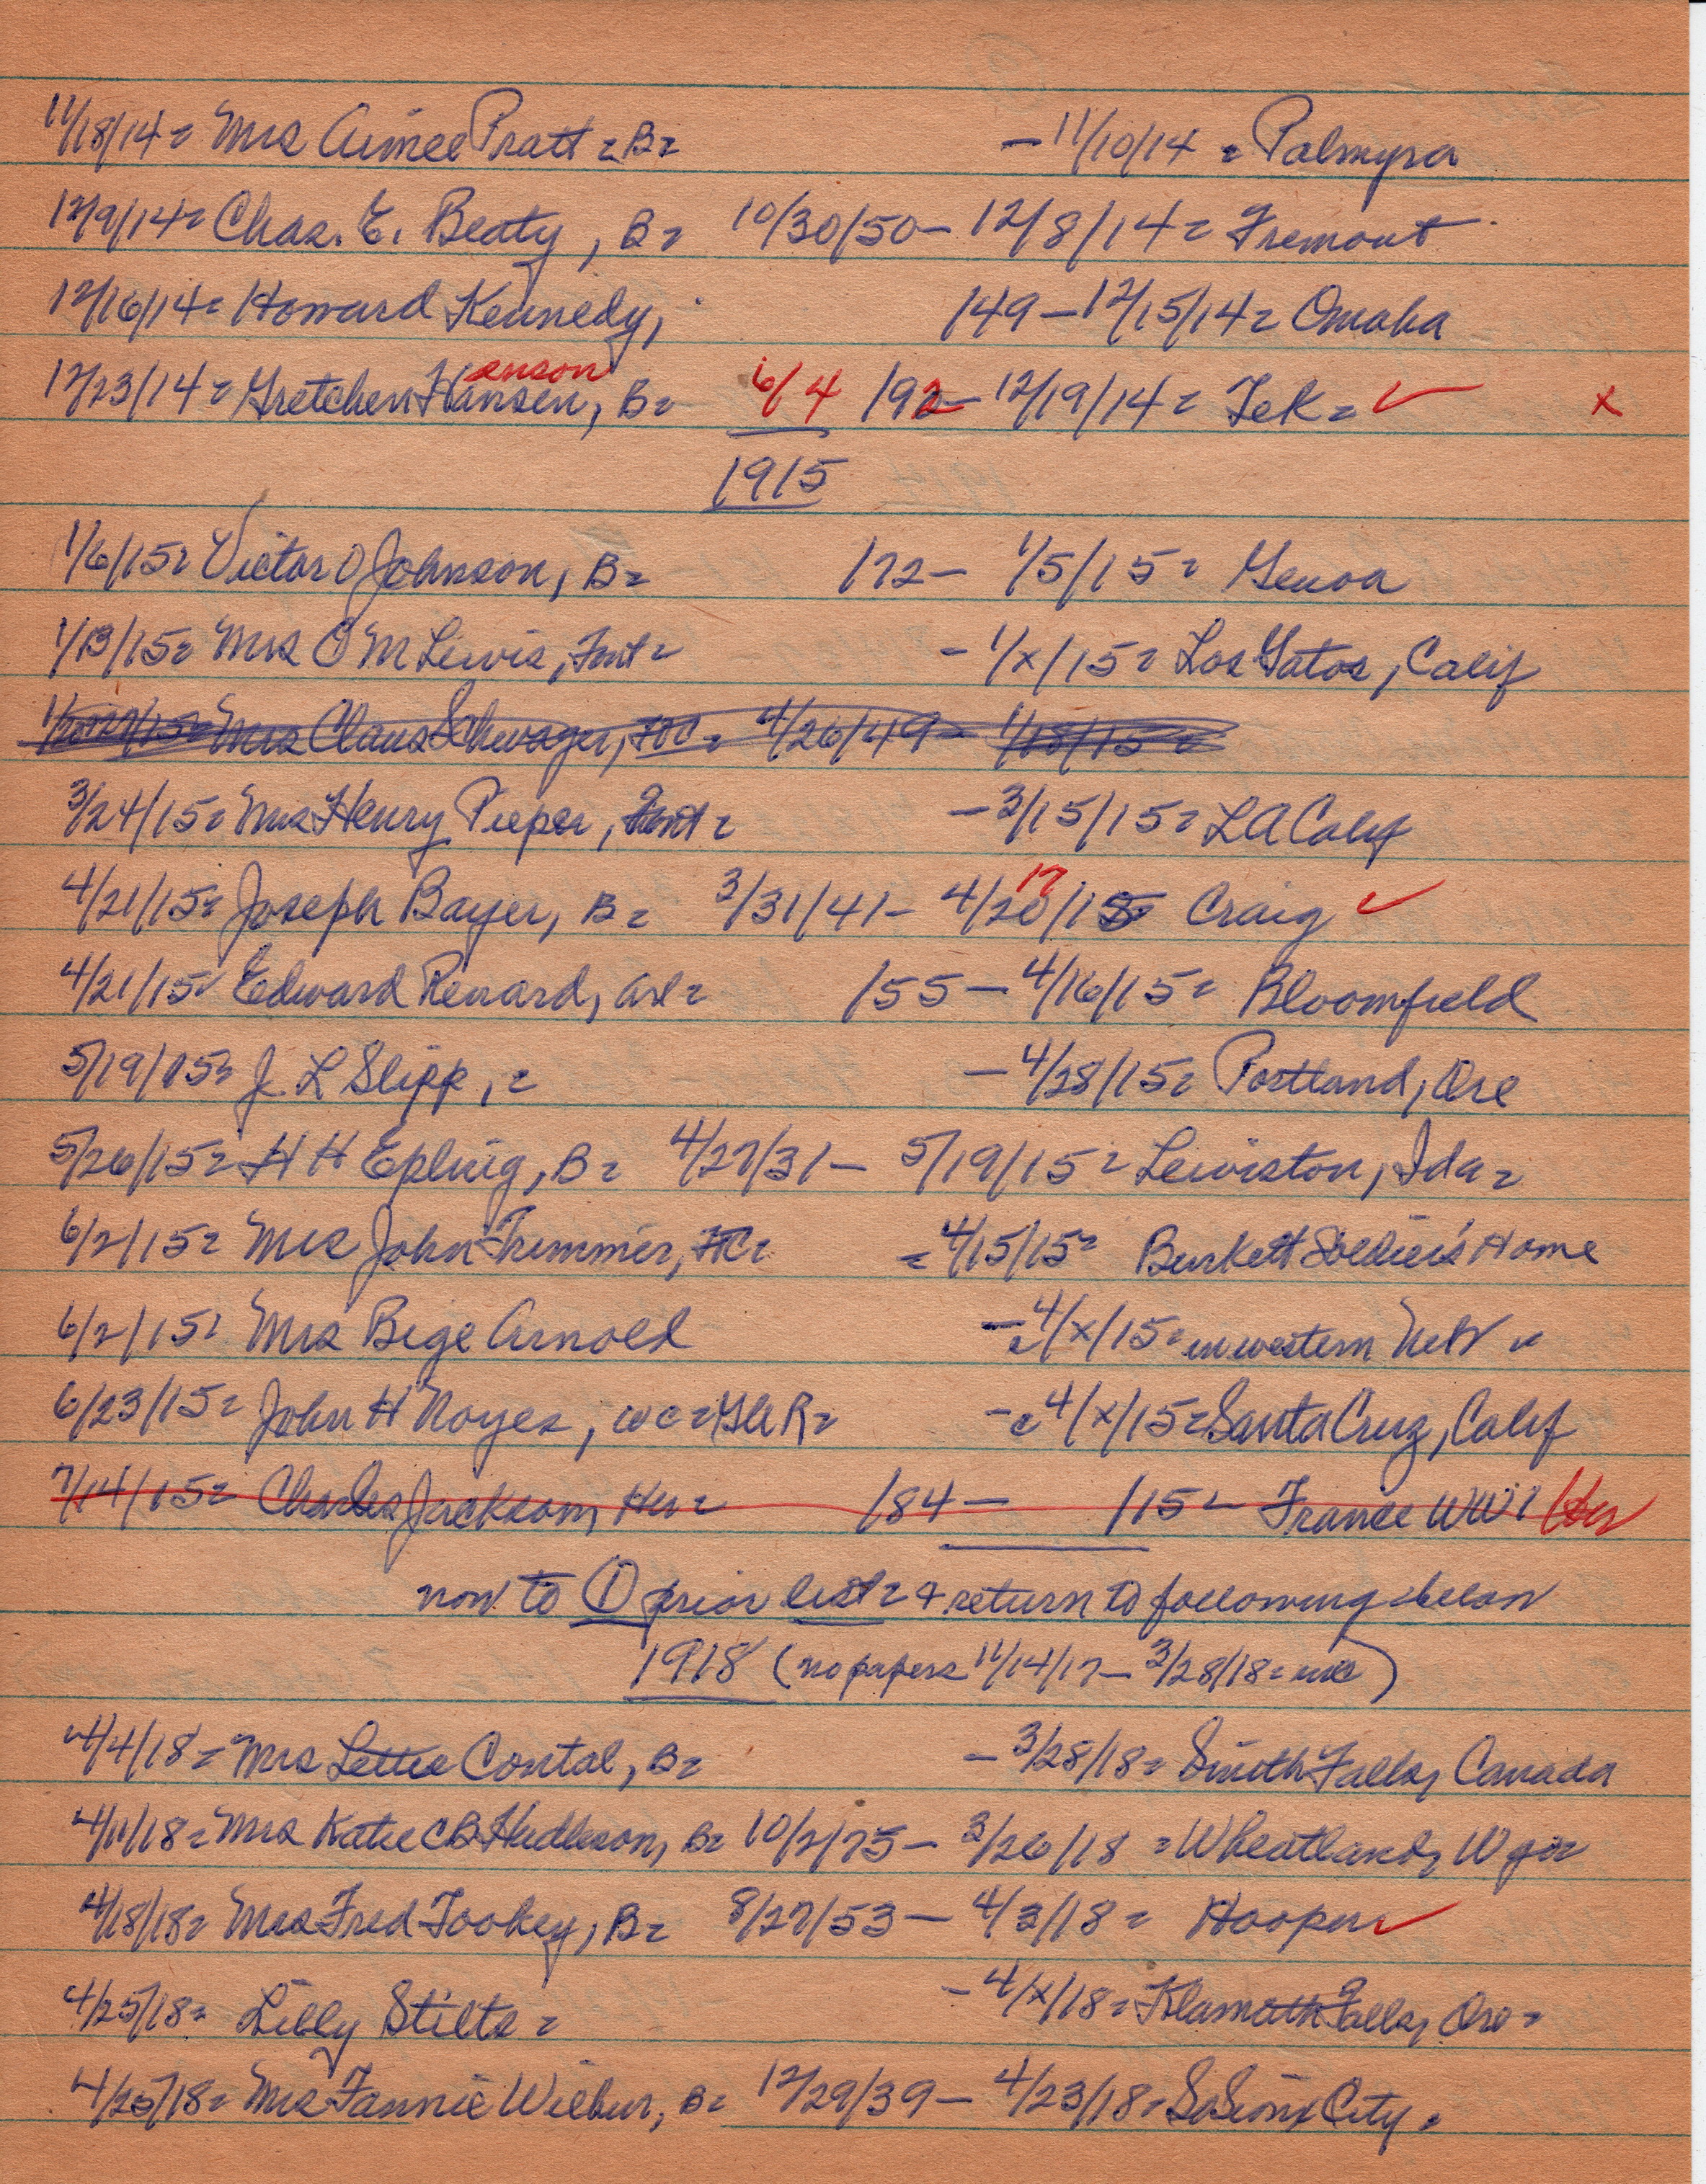 11/18/14= Mrs Aimee Pratt = B= - 11/10/14 = Palmyra
12/9/14= Chas. E. Beaty, B= 10/30/50- 12/8/14= Fremont
12/16/14= Howard Kennedy, /49 - 12/15/14= Omaha
anson
12/23/14= Gretchen Hansen, B= 6/4 /92- 12/19/14= Tek= ✓ x
1915
1/6/15= Victor O Johnson, B= /72- 1/5/15= Genoa
1/13/15= Mrs O M Lewis, Fmt= - 1/x/15= Los Gatos, Calif
Mrs Claus Schwager, = 4/26/49- 1/18/15=
3/24/15= Mrs Henry Pieper, = - 3/15/15= LA Calif
17
4/21/15= Joseph Bayer, B= 3/31/41- 4/20/15 Craig ✓
4/21/15= Edward Renard, Arl= /55- 4/16/15= Bloomfield
5/19/15= J. L Slipp, = - 4/28/15= Portland, Ore
5/26/15= H H Epling, B= 4/27/31- 5/19/15= Lewiston, Ida=
6/2/15= Mrs John Trimmer, FC= = 4/15/15= Burkett Soldier's Home
6/2/15= Mrs Bige Arnold - 4/x/15= in western Neb =
6/23/15= John H Noyes, wc= GAR= - 4/x/15= Santa Cruz, Calif
7/14/15= Charles Jackson, Her= /84- /15= France WW1 Her
now to ① prior list= + return to following below
1918 (no papers 11/14/17- 3/28/18= )
4/4/18= Mrs Lettie Contal, B= - 3/28/18= Smith Falls, Canada
4/11/18= Mrs Katie CB Hudleson, B= 10/2/75- 3/26/18 = Wheatland, Wyo=
4/18/18= Mrs Fred Tookey, B= 8/27/53- 4/3/18= Hooper ✓
4/25/18= Libby Stilts= - 4/x/18= Klamath Falls, Ore=
4/25/18= Mrs Fannie Wilbur, B= 12/29/39- 4/23/18= So Sioux City =